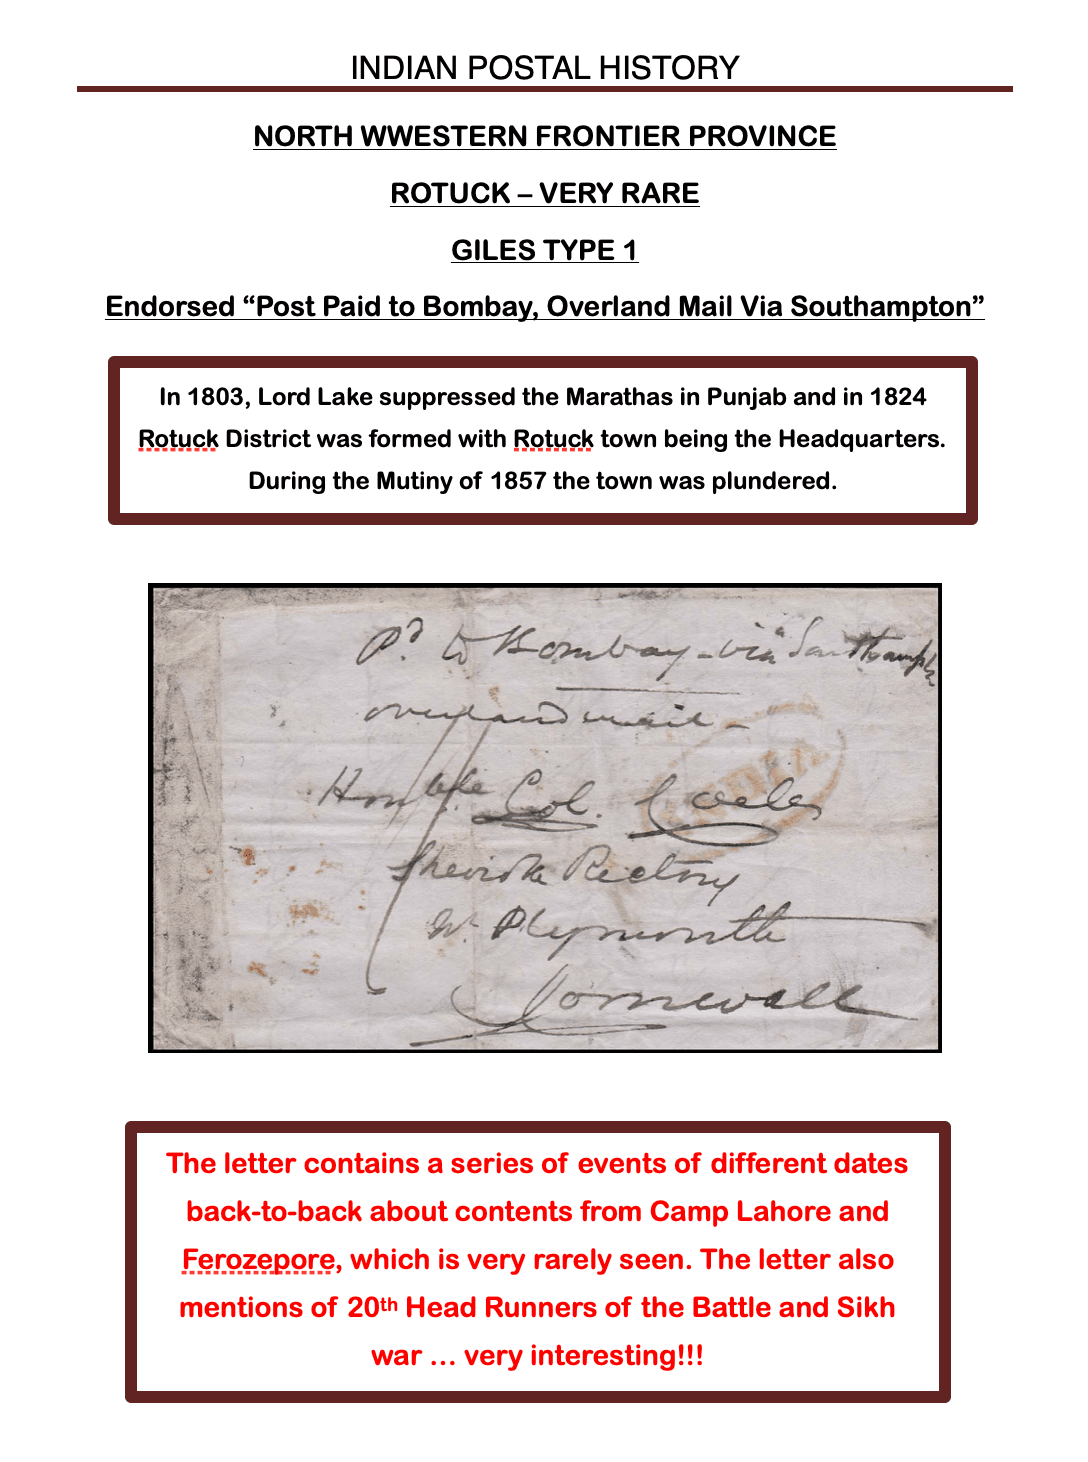 INDIAN POSTAL HISTORY
NORTH WWESTERN FRONTIER PROVINCE
ROTUCK – VERY RARE
GILES TYPE 1
Endorsed “Post Paid to Bombay, Overland Mail Via Southampton”
In 1803, Lord Lake suppressed the Marathas in Punjab and in 1824
Rotuck District was formed with Rotuck town being the Headquarters.
During the Mutiny of 1857 the town was plundered.
Pd to Bombay - via Southampton
overland mail -
INDIA
Honble Col.
Rectory
Plymouth
Cornwall
The letter contains a series of events of different dates
back-to-back about contents from Camp Lahore and
Ferozepore, which is very rarely seen. The letter also
mentions of 20th Head Runners of the Battle and Sikh
war … very interesting!!!